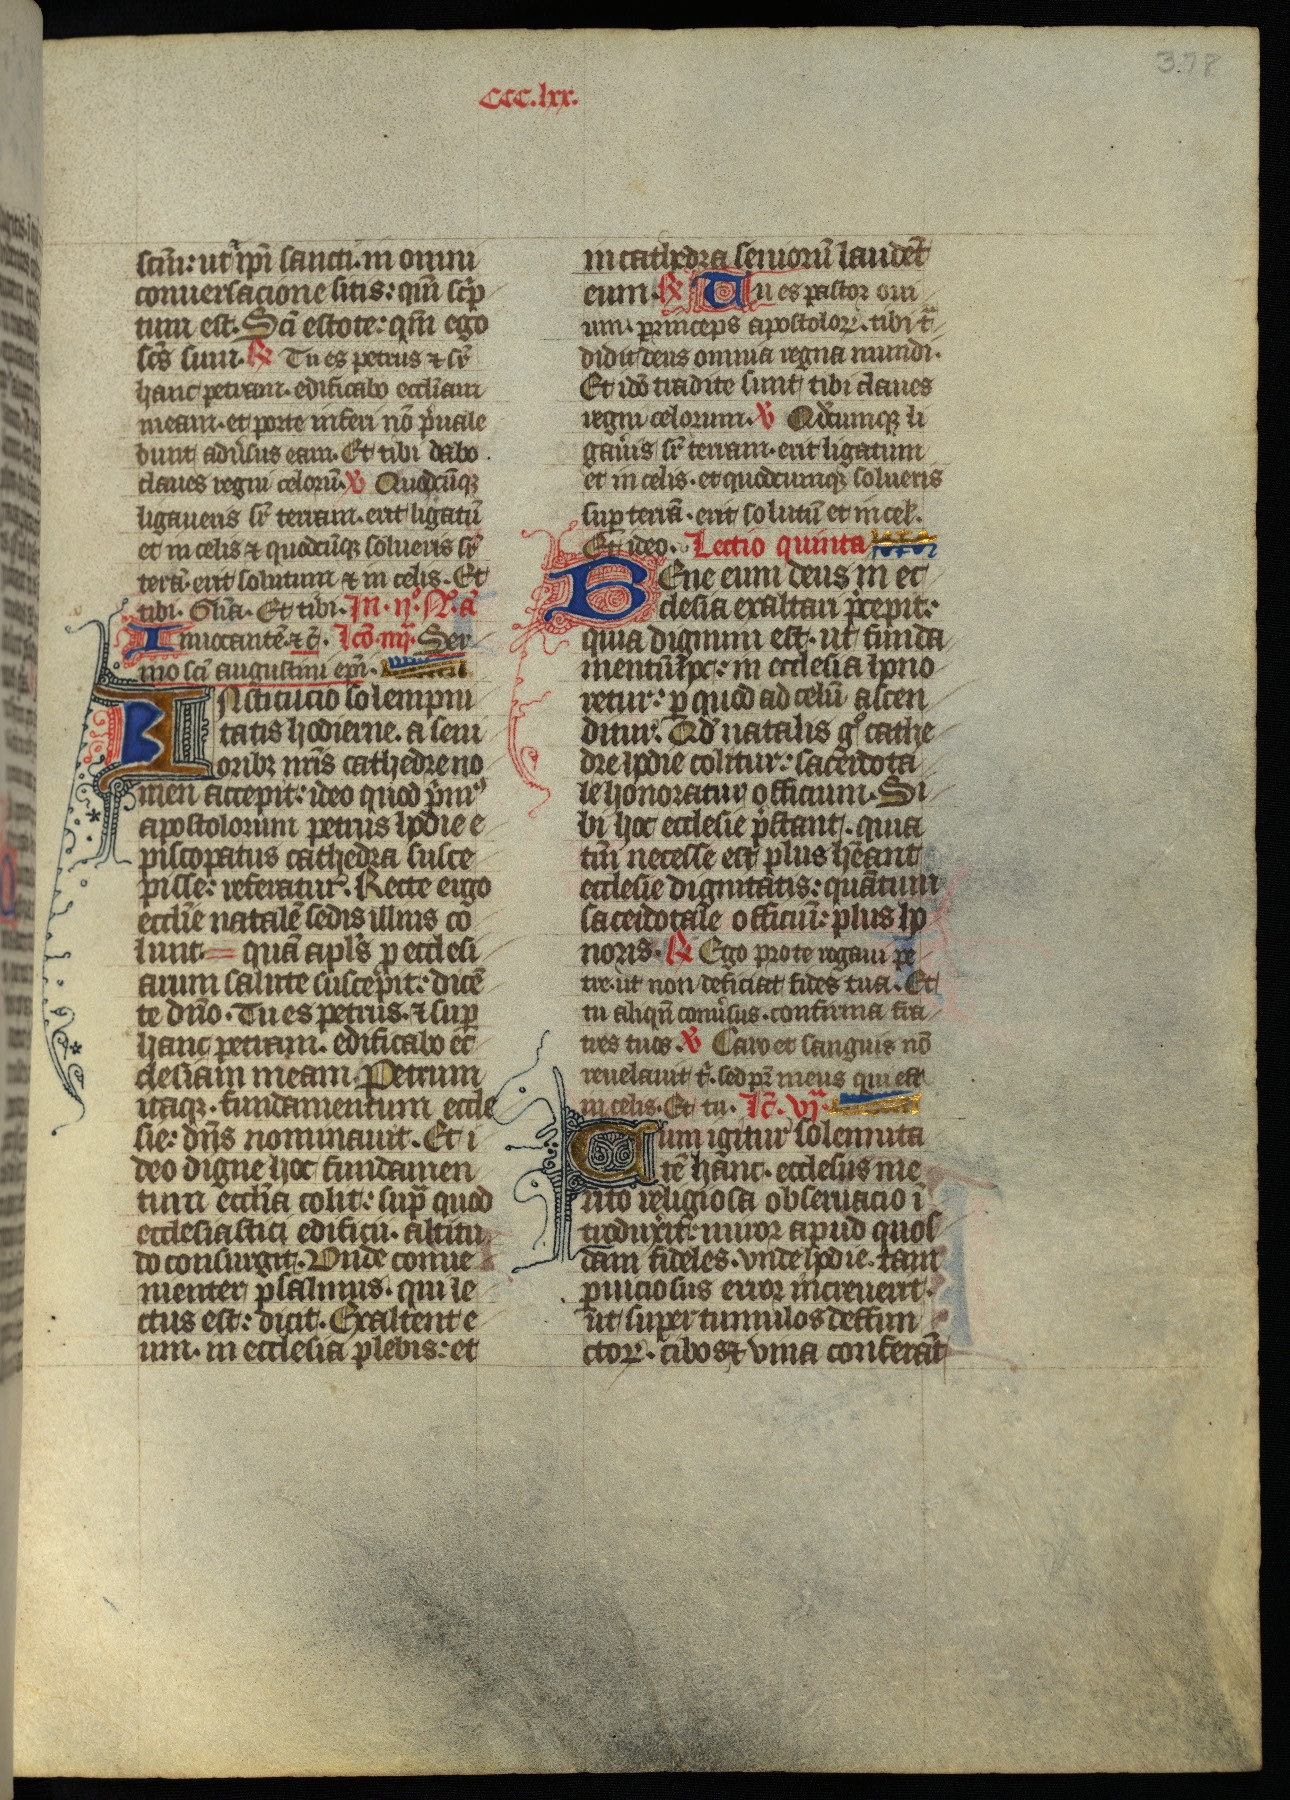 378
ccc.lxx.
sc̄m: ut ⁊ ip̄i sancti. in omni
conuersacione sitis: qm̄ sc̄p
tum est. Sc̄i estote: qm̄ ego
sc̄s sum. ℟ Tu es petrus ⁊ sr̄
hanc petram. edificabo eccl̄iam
meam. et porte inferi nō p̄uale
bunt adu̓sus eam. Et tibi dabo.
claues regni celorū. ℣ Quodcūq̨
ligaueris sr̄ terram. erit ligatū
et in celis ⁊ quodcūq̨ solueris sr̄
terā. erit solutum ⁊ in celis. Et
tibi. Gl̄ia. Et tibi. In. ij. N. a̓
Inuocantē. ⁊c̄. Lc̄o. iiij. Ser
mo sc̄i augustini ep̄i.
Institucio solempni
tatis hodierne. a seni
oribꝫ nr̄is cathedre no
men accepit: ideo quod p̓mꝰ
apostolorum petrus hodie e
piscopatus cathedra susce
pisse: referatur. Recte ergo
eccl̄ie natalē sedis illius co
lunt. quā apl̄s p ecclesi
arum salute suscepit: dicē
te dn̄o. Tu es petrus. ⁊ sup̄
hanc petram. edificabo ec̄
clesiam meam. Petrum
itaq̨. fundamentum eccle
sie: dn̄s nominauit. Et i
deo digne hoc fundamen
tum eccl̄ia colit: sup̄ quod
ecclesiastici edificii. altitu
do consurgit. Vnde conue
nienter psalmus. qui le
ctus est: dicit. Exaltent e
um. in ecclesia plebis: et
in cathedra seniorū laudet̄
eum. ℟ Tu es pastor oui
um. princeps apostoloꝝ. tibi t̄
didit deus omnia regna mundi.
Et ideo tradite sunt tibi claues
regni celorum. ℣ Qd̓cumq̨ li
gau̓is sr̄ terram. erit ligatum
et in celis. et quodcumq̨ solueris
sup terrā. erit solutū et in cel̄.
Et ideo. Lectio quinta
Bene eum deus in ec
clesia exaltari p̓cepit:
quia dignum est. ut funda
mentū hoc: in ecclesia hono
retur: p quod ad celū ascen
ditur. Qd̓ natalis gͦ cathe
dre hodie colitur: sacerdota
le honoratur officium. Si
bi hoc ecclesie p̓stant. quia
tm̄ necesse est plus hēant
ecclesie dignitatis: quātum
sacerdotale officiū: plus ho
noris. ℟ Ego pro te rogaui pe
tre. ut non deficiat fides tua. Et
tu aliqn̄ conu̓sus. confirma fra
tres tuos. ℣ Caro et sanguis nō
reuelauit t̓. sed pr̄ meus qui est
in celis. Et tu. Lc̄. vj.
Cum igitur solennita
tē hanc. ecclesiis me
rito religiosa obseruacio i
troduxit: miror apud quos
dam fideles. vnde hodie. tam
p̄niciosus error increuerit.
ut super tumulos deffun
ctoꝝ. cibos ⁊ vina conferāt